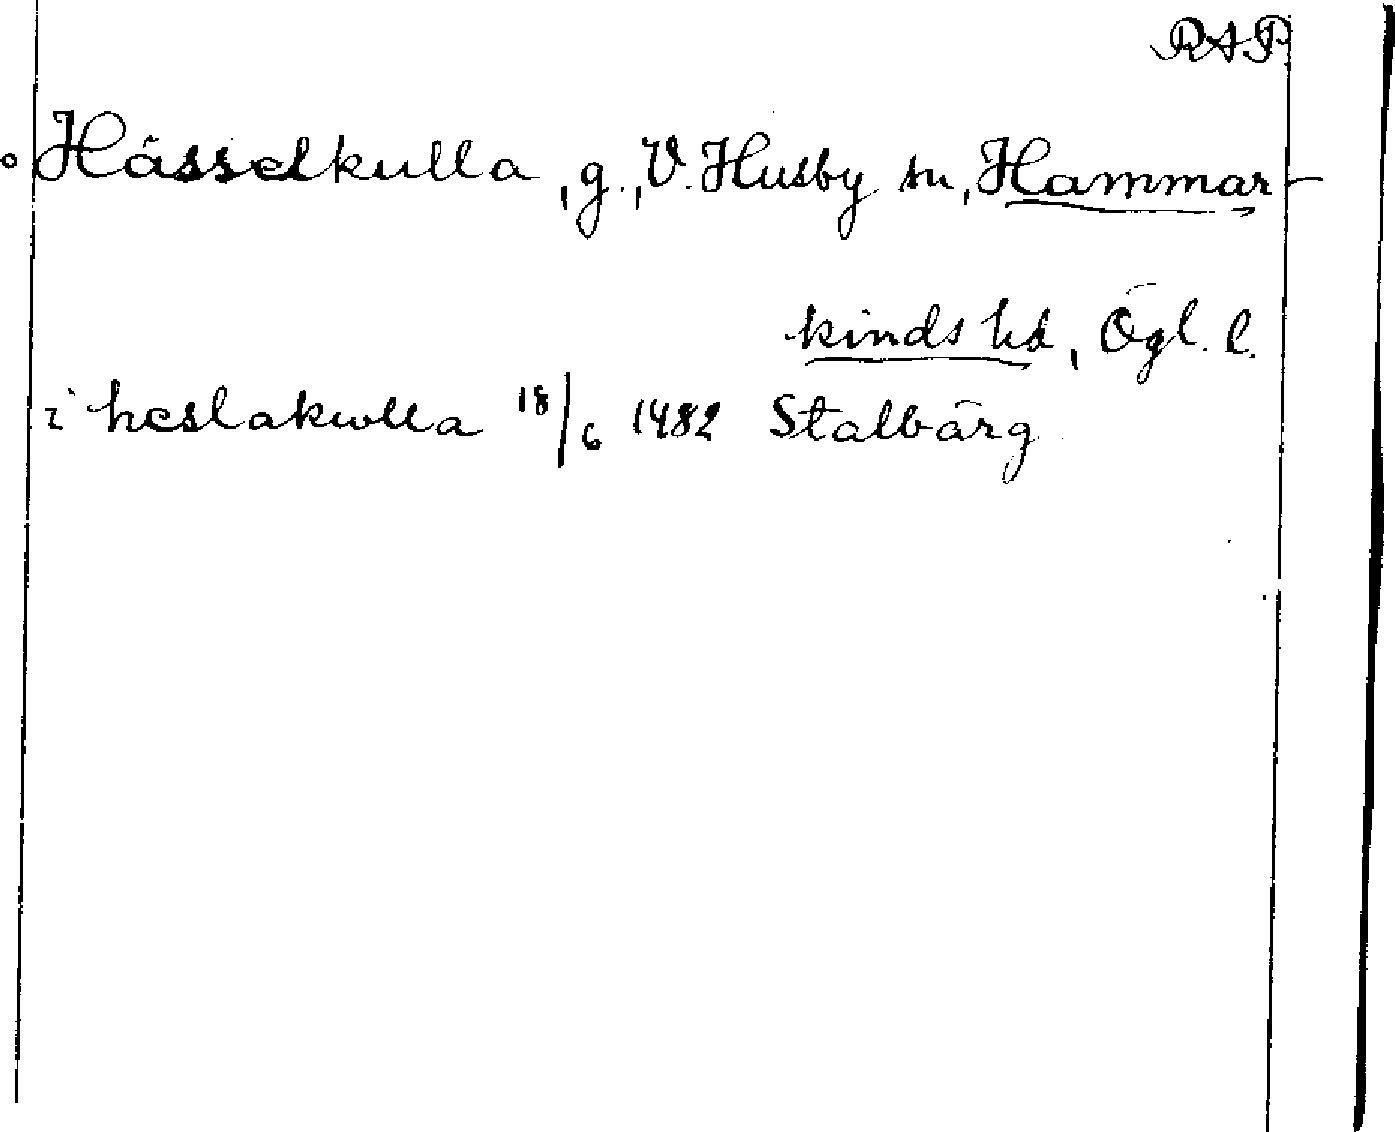 RAP
Hässelkulla, g., V. Husby sn, Hammar-
kinds hd, Ögl. l.
i heslakwlla 18/6 1482 Stalbärg